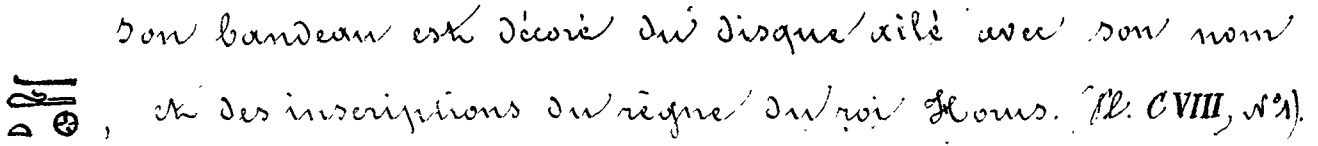 son bandeau est décoré du disque ailé avec son nom
, et des inscriptions du règne du roi Horus. (Pl. CVIII, N°1).